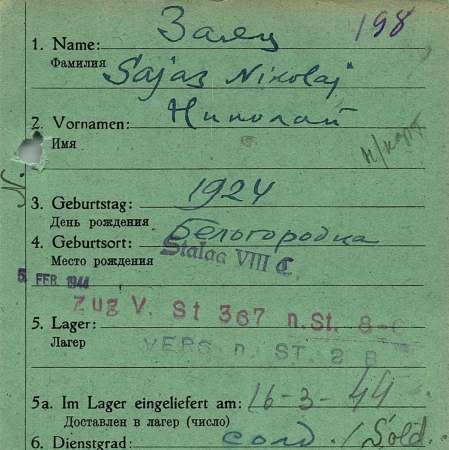 198
Заяц
1. Name:
Фамилия
Sajaz Nikolaj
2. Vornamen: Николай
Имя
3. Geburtstag: 1924
День рождения
4. Geburtsort: Бельгородка
Место рождения
Stalag VIII C.
5. FEB. 1944
Zug V. St 367 n. St. 8-C
5. Lager:
Лагер
VERS n. ST. 2 B
5a. Im Lager eingeliefert am: 16-3-44
Доставлен в лагер (число)
6. Dienstgrad: солд. / Sold.